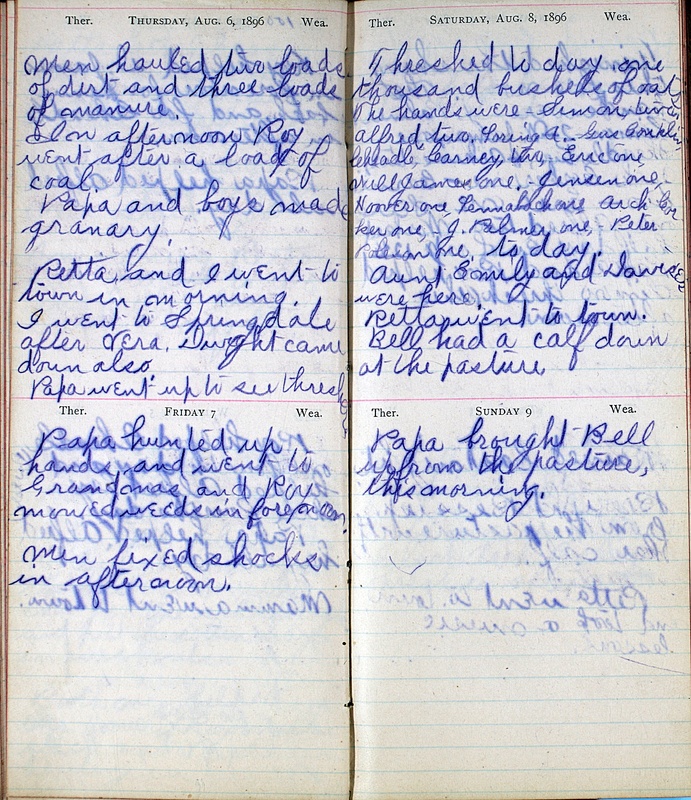 Ther. THURSDAY, AUG. 6, 1896 Wea.
Men hauled two loads
of dirt and three loads
of manure.
Ion afternoon Roy
went after a load of
coal.
Papa and boys made
granary.
Retta and I went to
town in morning.
I went to Springdale
after Vera. Dwight came
down also.
Papa went up to see thresh
Ther. FRIDAY 7 Wea.
Papa hunted up
hands, and went to
Grandmas and Roy
mowed weeds in forenoon.
Men fixed shocks
in afternoon.
Ther. SATURDAY, AUG. 8, 1896 Wea.
Threshed to day one
thousand bushels of oat
The hands were - Simon two,
alfred two, Loring 1 - Gus
Carney two, Eric one
Will James one, - Jensen one
Hoover one one Arch
ker one, J. one - Peter
one to day.
Aunt Emily and Davis
were here.
Retta went to town.
Bell had a calf down
at the pasture.
Ther. SUNDAY 9 Wea.
Papa brought Bell
up from the pasture,
this morning.